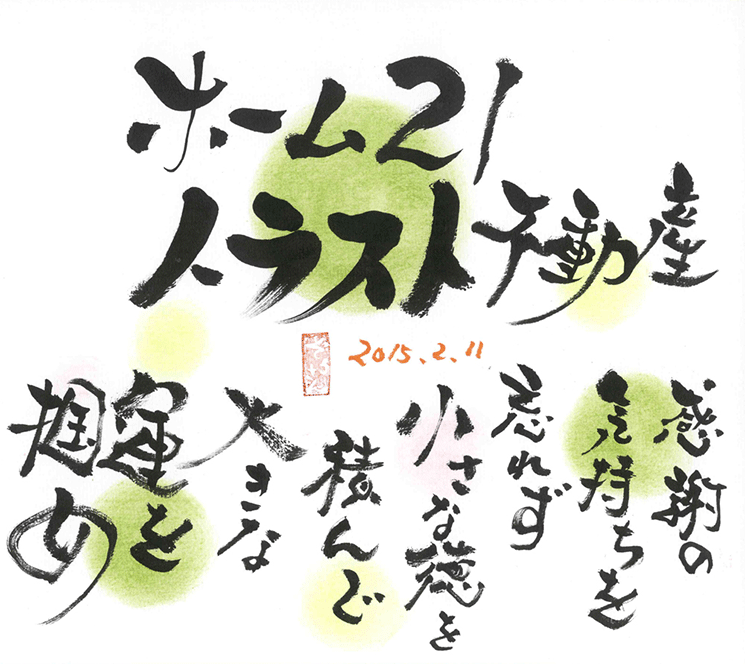 ホーム21
トラスト不動産
2015.2.11
感謝の
気持ちを
忘れず
小さな徳を
積んで
大きな
運を
掴め